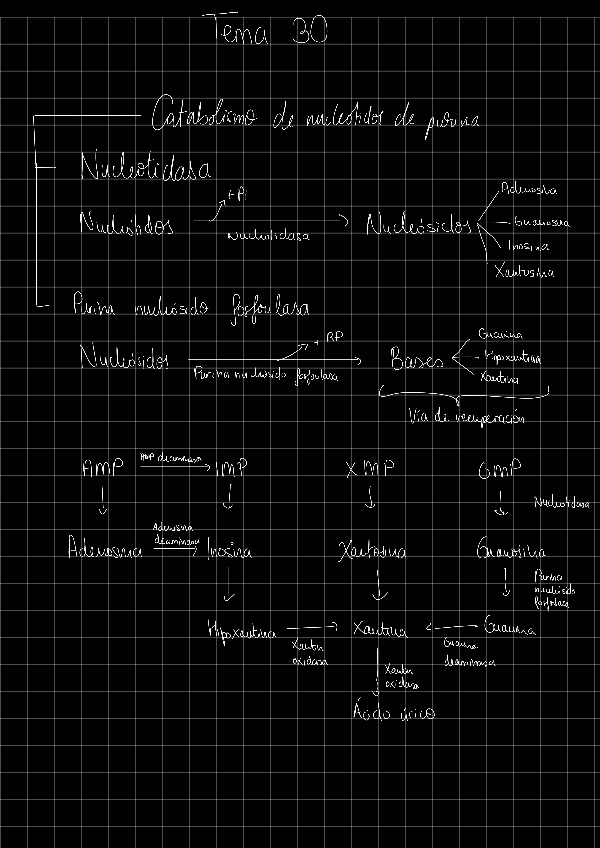 Tema 30
Catabolismo de nucleótidos de purina
Nucleotidasa
+Pi
Nucleótidos
Nucleotidasa
Nucleósidos
Adenosina
Guanosina
Inosina
Xantosina
Purina nucleósido fosforilasa
Nucleósidos
+ RP
Purina nucleósido fosforilasa
Bases
Guanina
Hipoxantina
Xantina
Vía de recuperación
AMP
AMP deaminasa
IMP
XMP
GMP
Nucleotidasa
Adenosina
Adenosina
deaminasa
Inosina
Xantosina
Guanosina
Purina
nucleósido
fosforilasa
Hipoxantina
Xantina
oxidasa
Xantina
Guanina
deaminasa
Guanina
Xantina
oxidasa
Ácido úrico